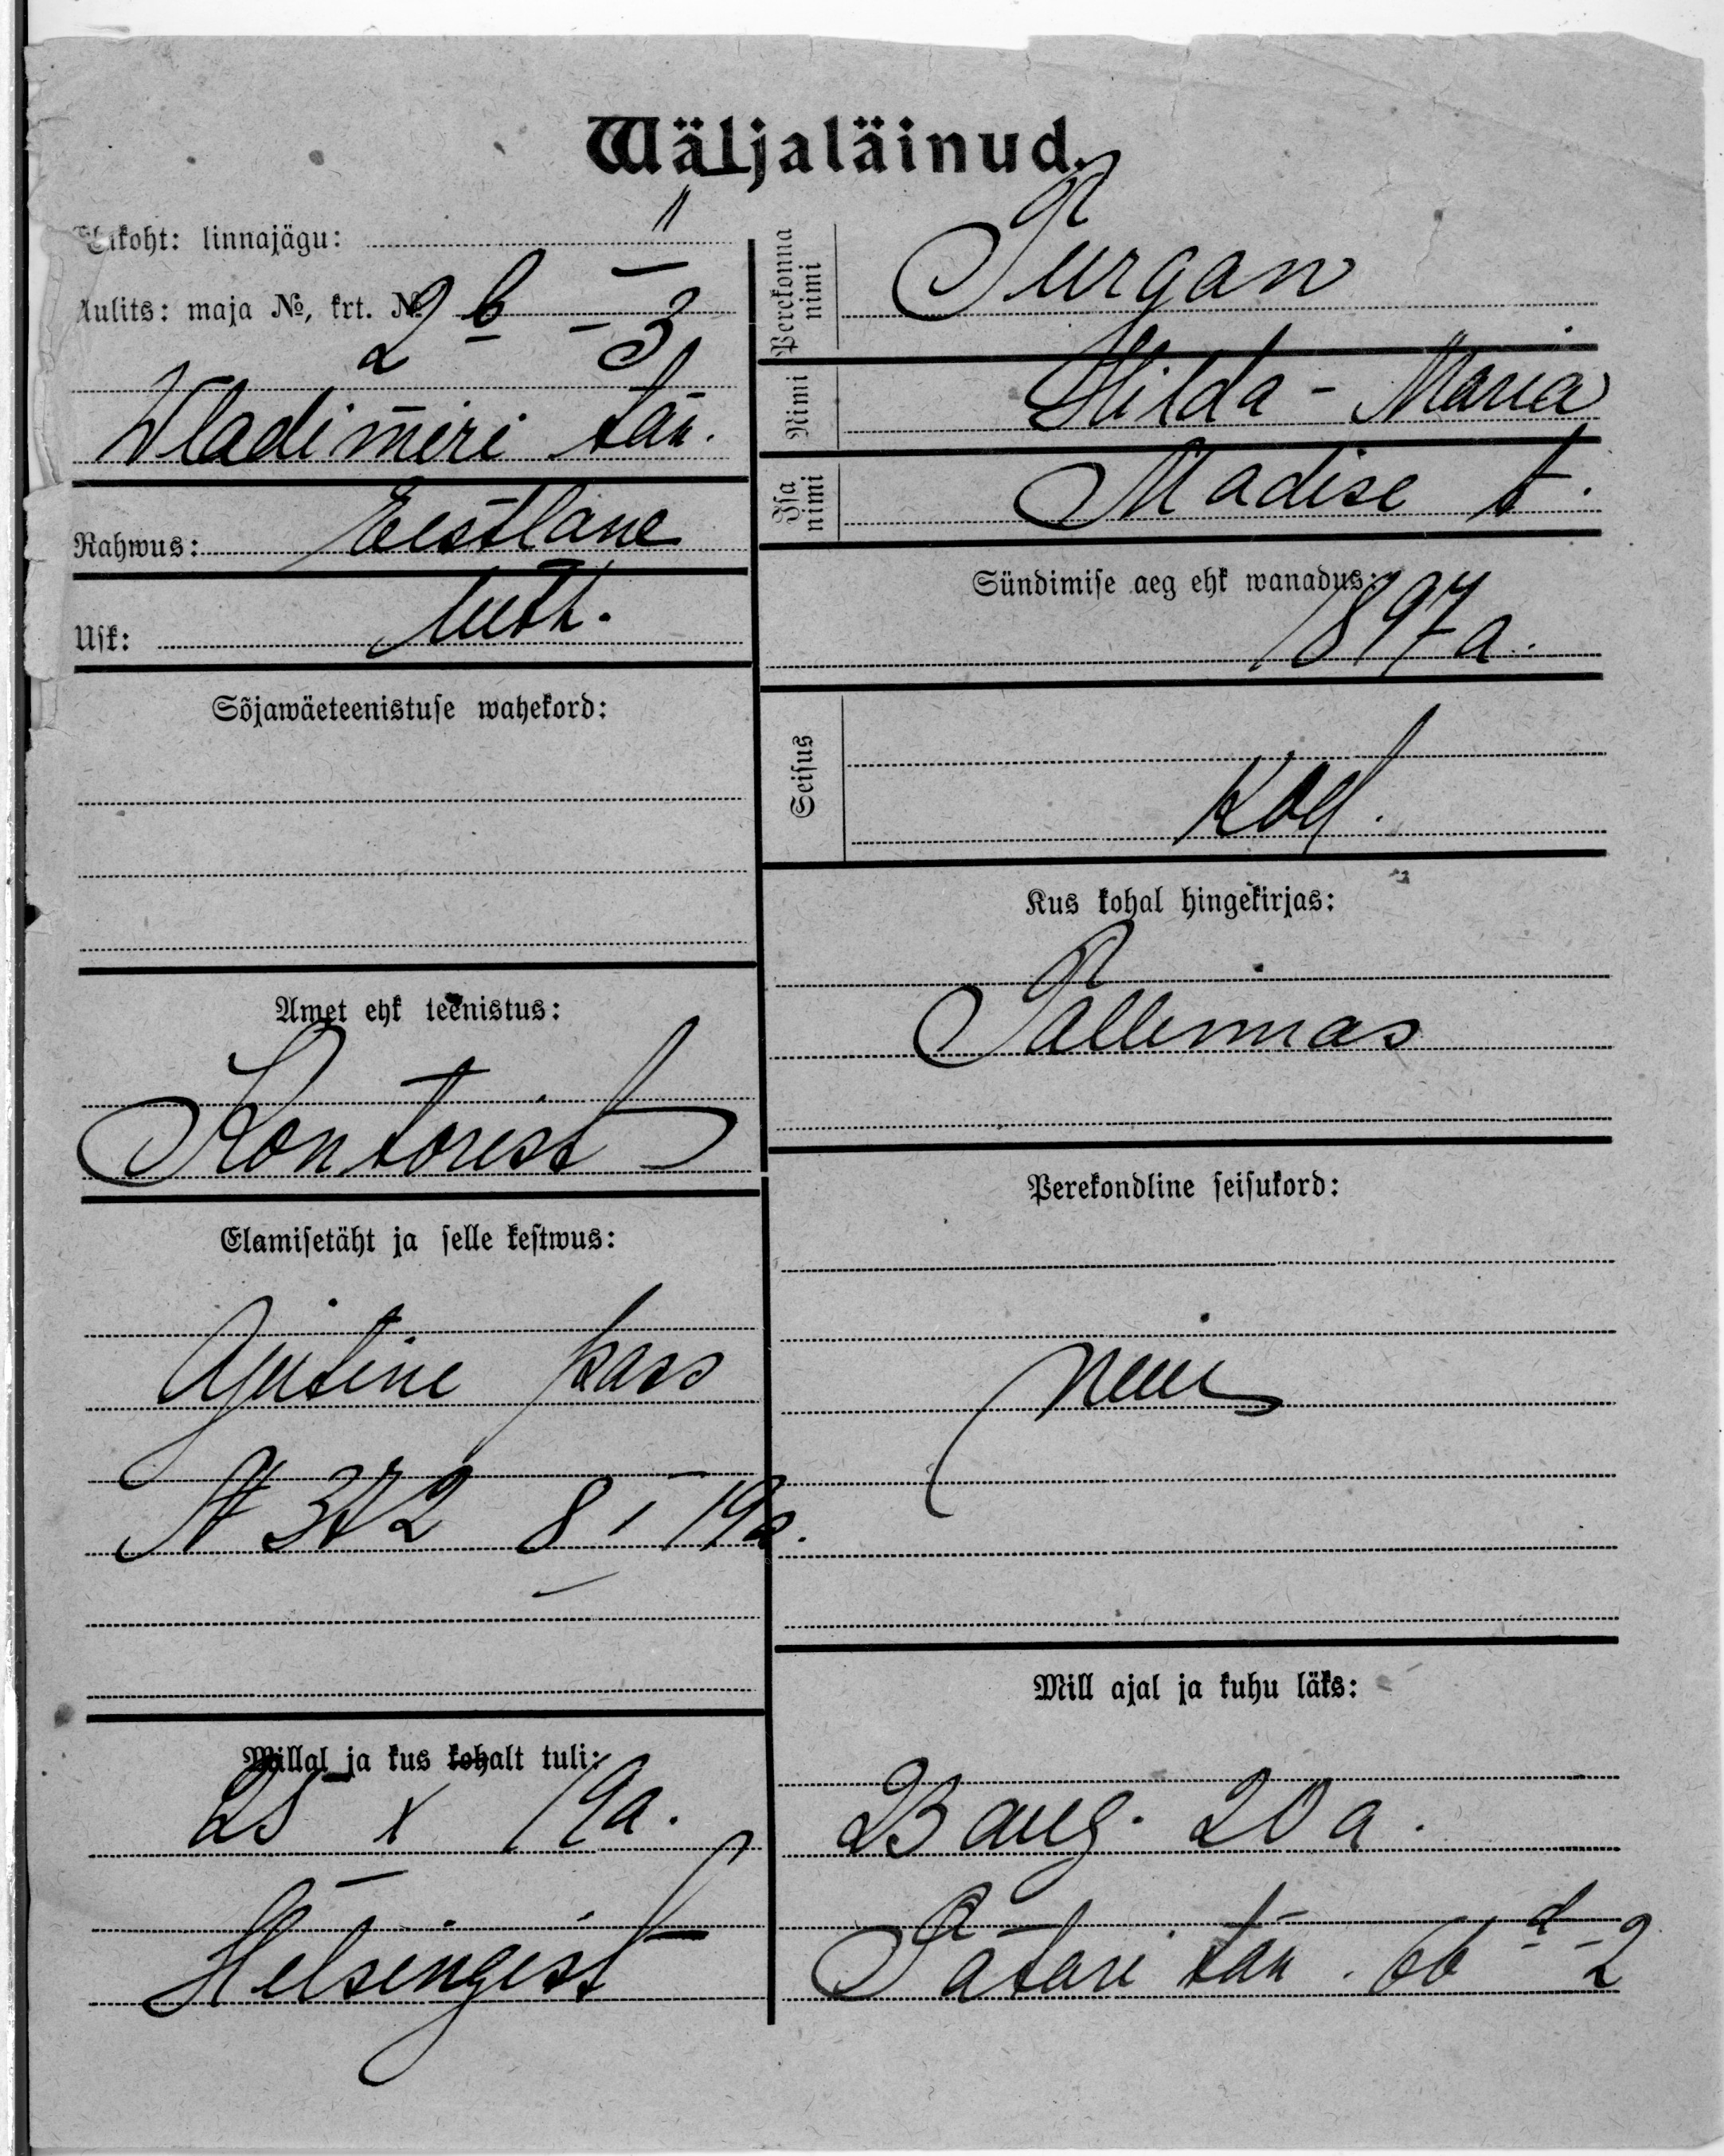 Wäljaläinud.
Elukoht: linnajägu: II
Aulits: maja №, krt. № 2 b - 3
Wladimiri tän.
Rahwus: Eestlane
Usk: luth.
Sõjawäeteenistuse wahekord:
Amet ehk teenistus:
Kontorist
Elamisetäht ja selle kestwus:
Ajutine pass
N 372 8 I 19a.
Millal ja kus kohalt tuli:
25 X 19a.
Helsingist
Perekonna nimi Turgan
Nimi Hilda - Maria
Isa nimi Madise t.
Sündimise aeg ehk wanadus:
1897 a.
Seisus Kod.
Kus kohal hingekirjas:
Tallinnas
Perekondline seisukord:
neiu
Mill ajal ja kuhu läks:
23 aug. 20 a.
Tatari tän. 66 d - 2